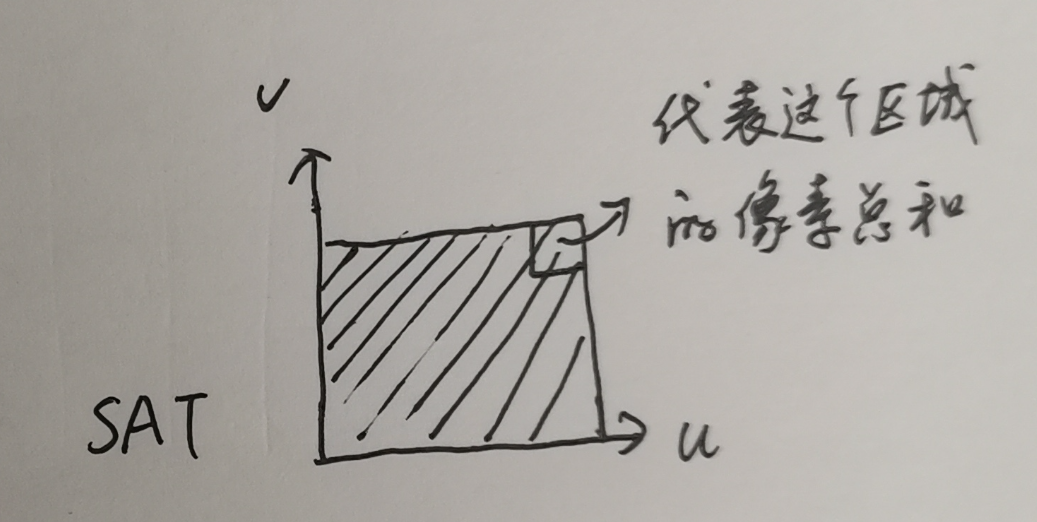 v
代表这个区域
的像素总和
SAT
u